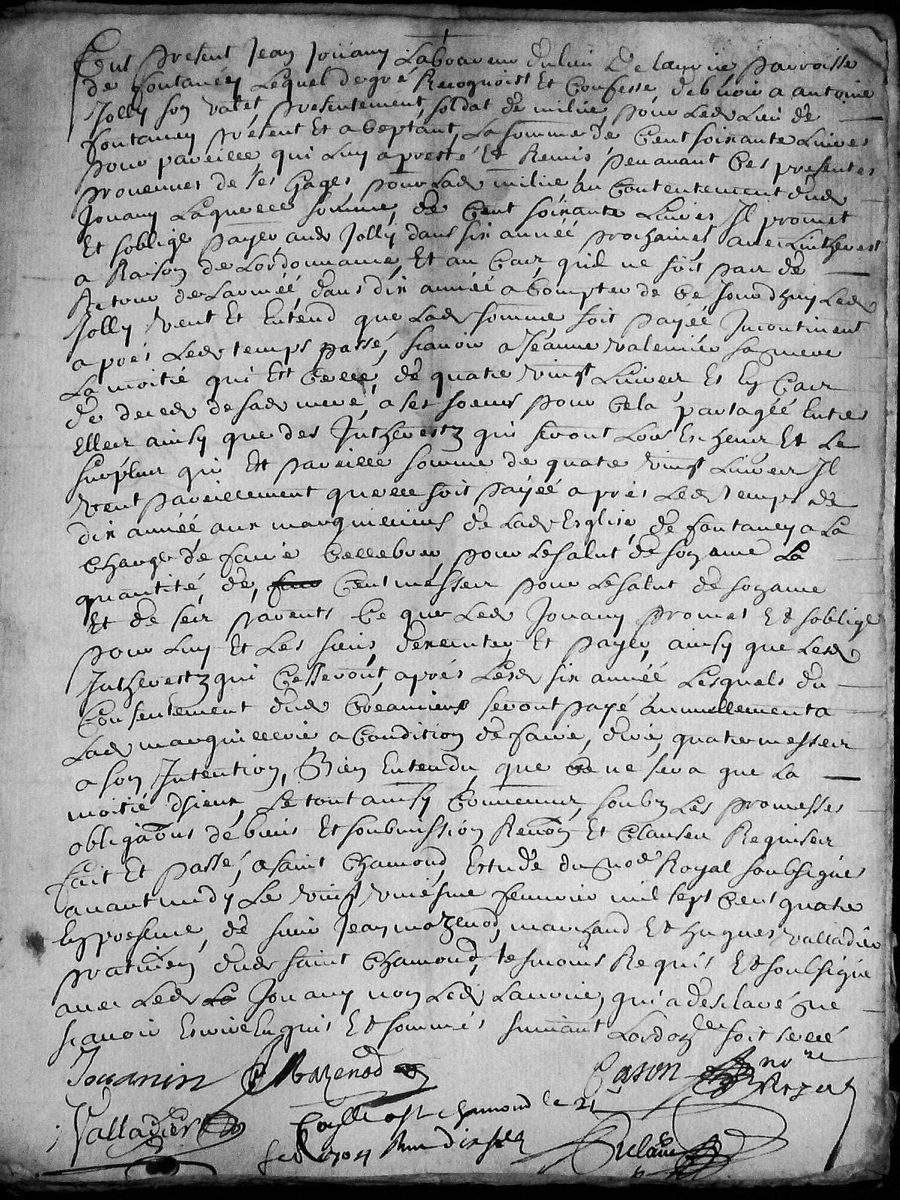 fut present Jean Jouany Laboureur du lieu De laurie parroisse
de fontaney Lequel de gré Recognoist Et Confesse debvoir a antoine
Jolly son valet presentement soldat de milice pour Led Lieu de
fontaney present Et acceptant La somme de Cent soixante Livres
pour pareille qui Luy a presté Et Remis Paravant Ces presentes
provenues de ses Gages pour Lad milice au Contentement dud
Jouany Laquelle somme de Cent soixante Livres Il promet
Et soblige payer aud Jolly dans six année prochaines avec Lintherest
a Raison de Lordonnance Et au Cas quil ne soit pas de
Retour de Larmée dans dix année a Compter de Ce Jourdhuy Led
Jolly veut Et Entend que Lad somme soit payée Incontinent
apres Led temps passé, scavoir a Jeanne valennier sa mere
La moitié qui Est Celle de quatre vingt Livres Et En Cas
de deced de sad mere, a ses soeurs pour Cela partagée Entres
Elles ainsy que des Interestz qui seront Lors Escheus Et Le
surplus qui Est pareille somme de quatre vingt Livres Il
veut pareillement quelle soit payée apres Led temps de
dix année aux marguilliers de Lad Esglise de fontaney a La
Charge de faire Cellebrer pour Le salut de son ame La
quantité de Cent messes pour Le salut de son ame
Et de ses parents Ce que Led Jouany promet Et soblige
pour Luy Et Les siens dexecuter Et payer, ainsy que Lesd
Intherestz qui Cesseront apres Lesd six année Lesquels du
Consentement dud Creancier seront payé annuellement a
Lad marguillerie a Condition de faire dire quatre messes
a son Intention, Bien Entendu que Ce ne sera que La
moitié diceux, Le tout ainsy Convenu, soubz Les promesses
obliga͠ons de biens Et soubmission Renon͠ Et Clauses Requises
fait Et passé, a saint Chamond, Estude du no͠re Royal soubsigné
avant midy Le vingt uniesme fevrier mil sept Cent quatre
En presence de sieur Jean mazenod marchand Et hugues valladier
praticien dud saint Chamond, tesmoins Requis Et soubsigné
avec Led Jouany non Led qui a desclaré ne
scavoir Escrire Enquis Et sommés suivant Lordo͠nce soit scellé
Jouanin Mazenod Cason no͠re
Valladier Collé a st chamond le 21
fev 1704